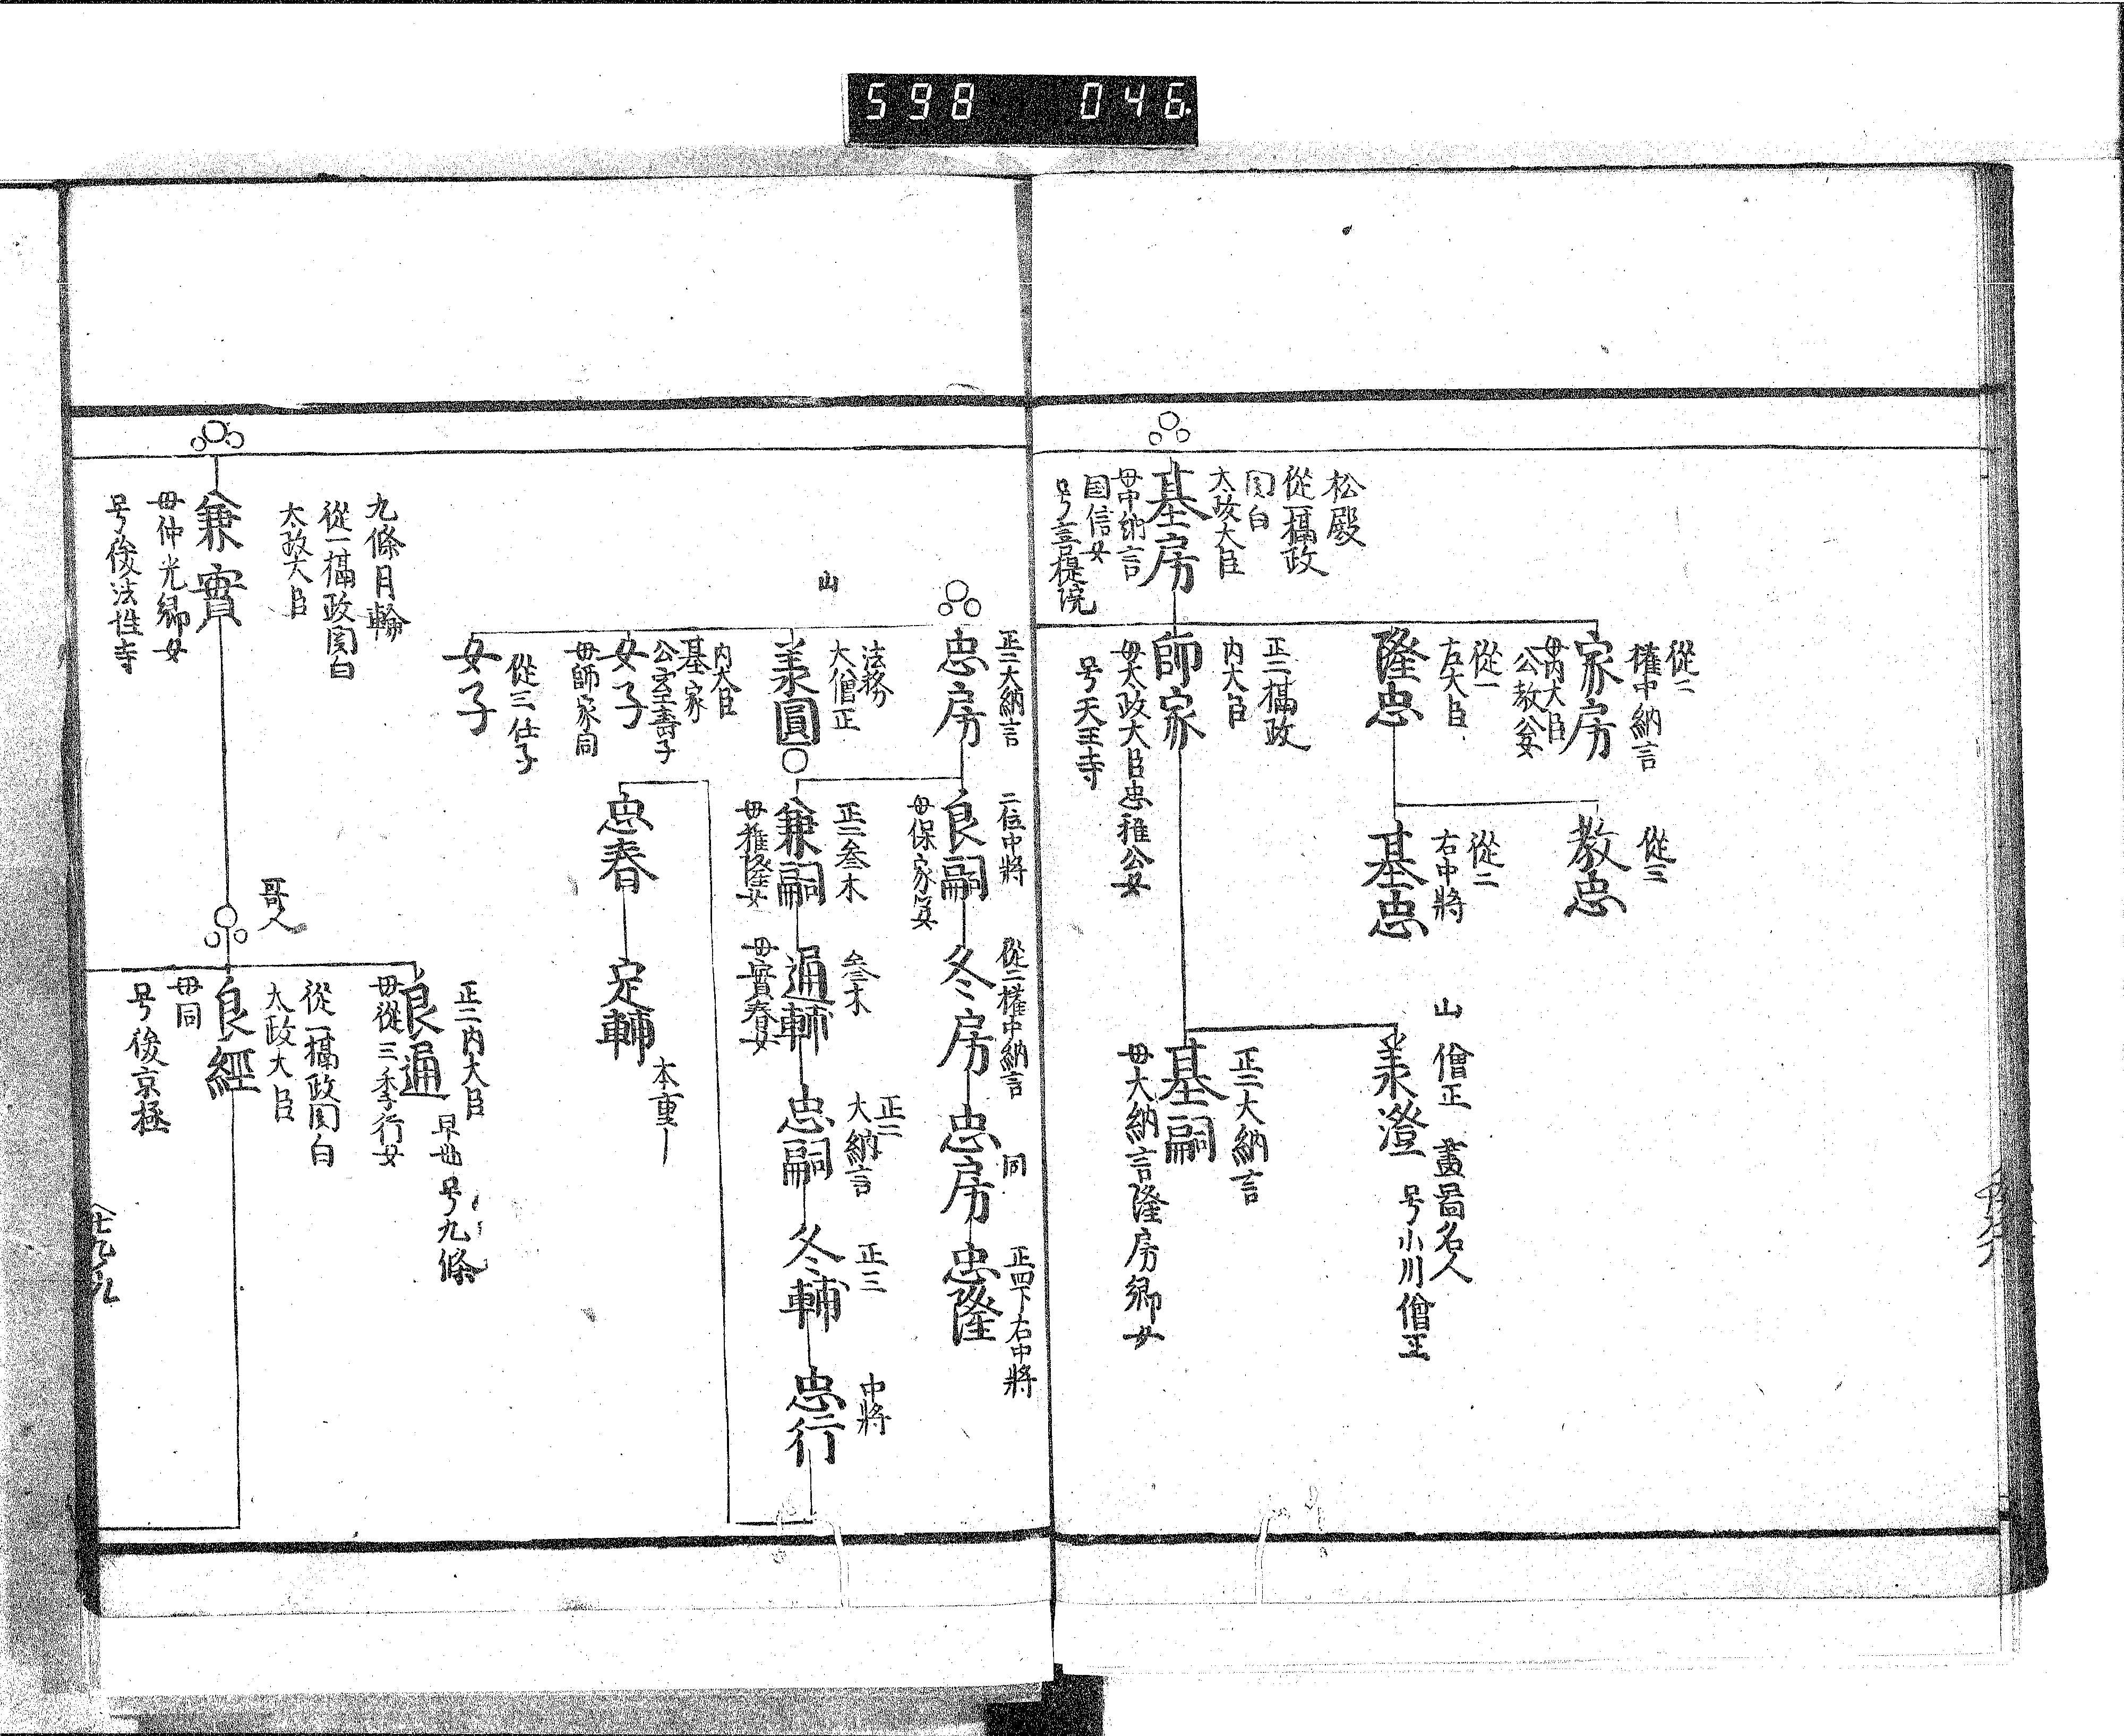 598 046
松殿
從一攝政
関白
太政大臣
基房
母中納言
国信女
号菩提院
從二
權中納言
家房
母内大臣
公教公女
從一
左大臣
隆忠
正二攝政
内大臣
師家
母太政大臣忠雅公女
号天王寺
從三
教忠
從二
右中將
基忠
山 僧正 畫圖名人
号小川僧正
承澄
正二大納言
基嗣
母大納言隆房卿女
正二大納言
忠房
山
法務
大僧正
承圓
内大臣
基家
公室壽子
女子
母師家同
從三仕子
女子
二位中將
良嗣
母保家女
從二權中納言
冬房
同
忠房
正四下右中將
忠隆
正二参木
兼嗣
母雅隆女
参木
通輔
母實春女
正二
大納言
忠嗣
正三
冬輔
中將
忠行
忠春
定輔
本重一
九條月輪
從一攝政関白
太政大臣
兼實
母仲光卿女
号後法性寺
正二内大臣
早世 号九條
良通
母從三季行女
哥人
從一攝政関白
太政大臣
良經
母同
号後京極